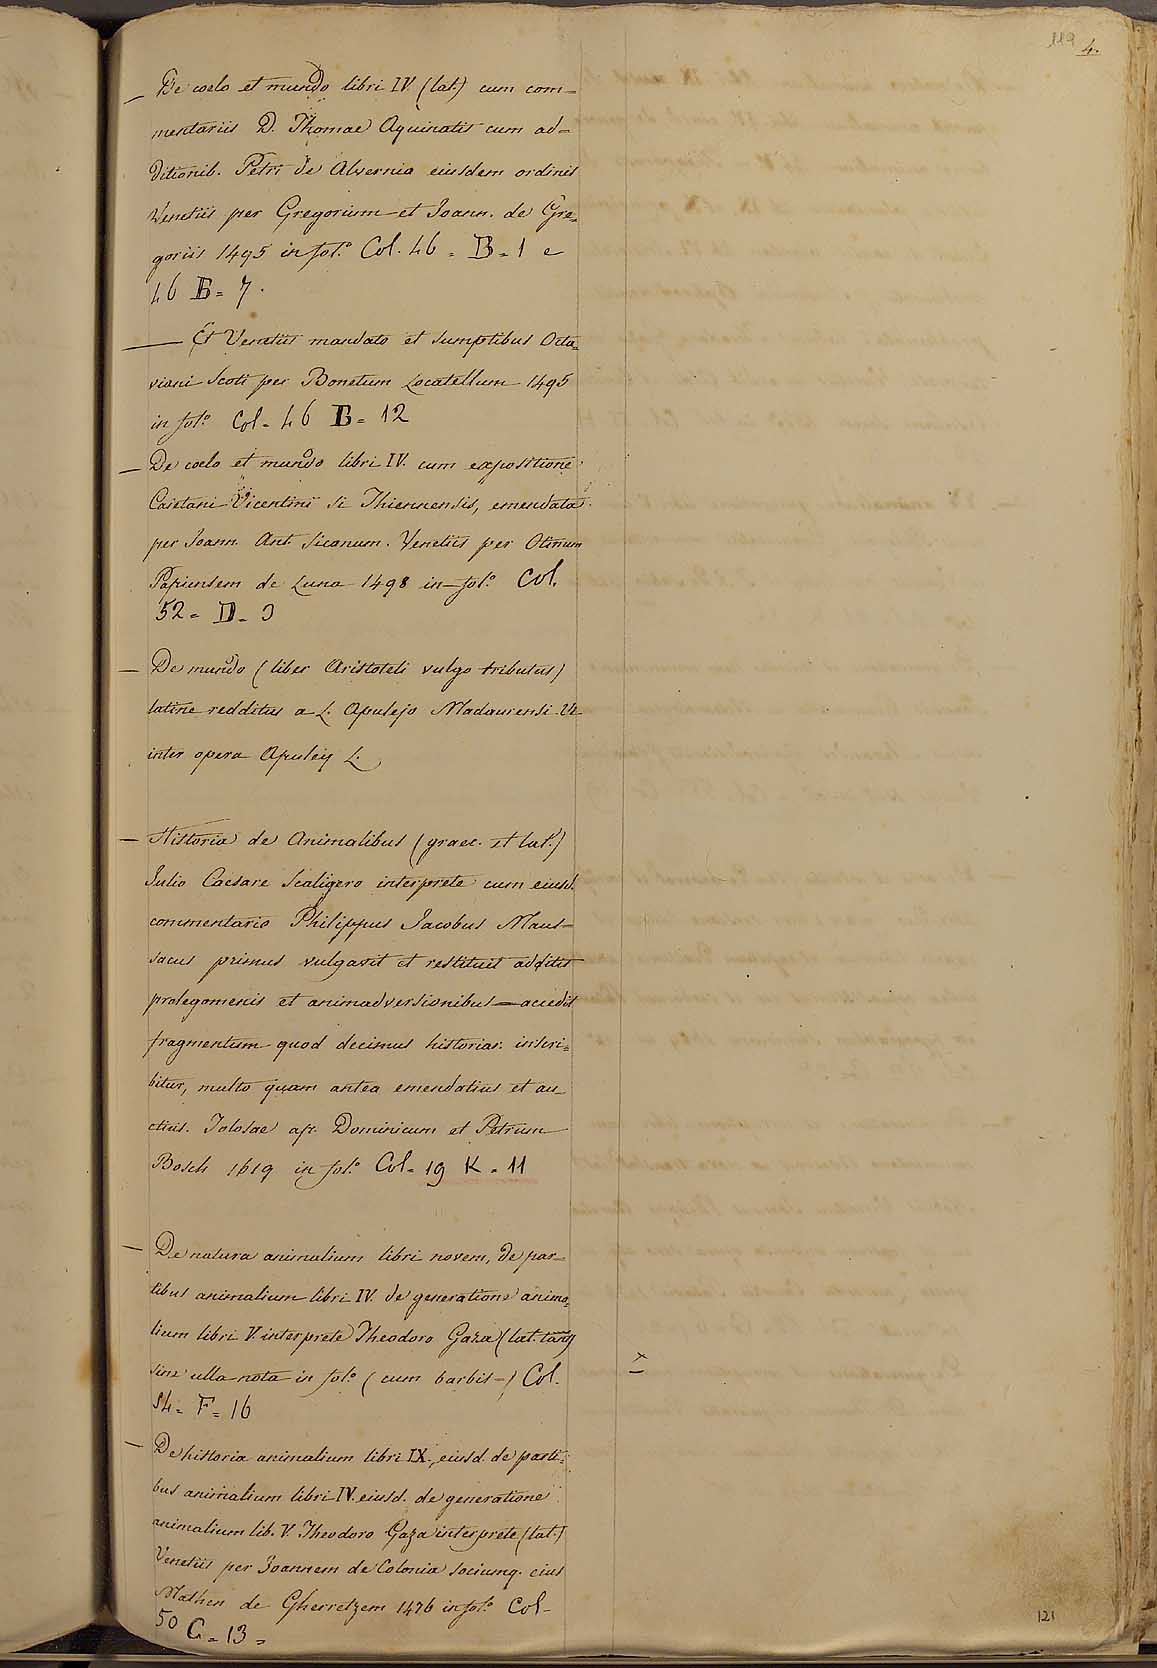 119 4.
— De coelo et mundo libri IV. (lat.) cum com=
mentariis D. Thomae Aquinatis cum ad=
ditionib. Petri de Alvernia eiusdem ordinis
Venetiis per Gregorium et Joann. de Gre=
goriis 1495 in fol.° Col. 46 = B = 1 e
46 B = 7.
— Et Venetiis mandato et sumptibus Octa=
viani Scoti per Bonetum Locatellum 1495
in fol.° Col = 46 B = 12
— De coelo et mundo libri IV. cum expositione
Caietani Vicentini si Thiennensis, emendata
per Joann. Ant. Siconum. Venetiis per Otinum
Papiensem de Luna 1498 in fol.° Col.
52 = D = 3
— De mundo (liber Aristoteli vulgo tributus)
latine redditus a L. Apulejo Madaurensi. V.
inter opera Apuleij L.
— Historia de Animalibus (graec. et lat.)
Julio Caesare Scaligero interprete cum eiusd.
commentario Philippus Jacobus Maus=
sacus primus vulgavit et restituit additis
prolegomenis et animadversionibus — accedit
fragmentum quod decimus historiar. inscri=
bitur, multo quam antea emendatius et au=
ctius. Tolosae ap. Dominicum et Petrum
Bosch 1619 in fol.° Col = 19 K = 11
— De natura animalium libri novem, de par=
tibus animalium libri IV. de generatione anima=
lium libri V. interprete Theodoro Gaza (lat. tant)
sine ulla nota in fol.° (cum barbis =) Col.
54 = F = 16
x
— De historia animalium libri IX., eiusd. de parti=
bus animalium libri IV. eiusd. de generatione
animalium lib. V. Theodoro Gaza interprete (lat.)
Venetiis per Joannem de Colonia sociumq. eius
Mathen de Gherretzem 1476 in fol.° Col =
50 G = 13 =
121